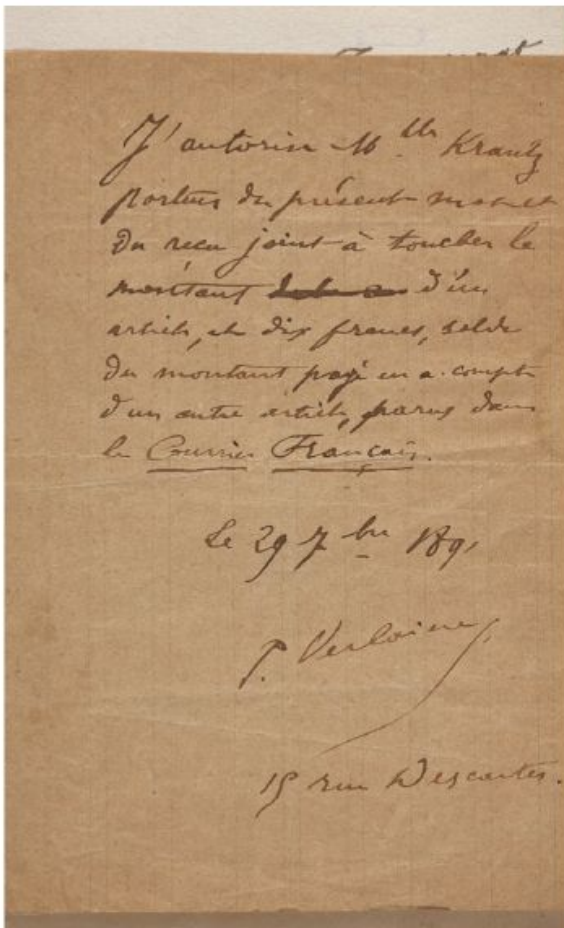 J'autorise M^lle Krantz
porteur du présent mot et
du reçu joint à toucher le
montant d'un
article, et dix francs, solde
du montant payé en a-compte
d'un autre article, parus dans
le Courrier Français.
Le 29 7^bre 1891
P. Verlaine
15 rue Descartes.